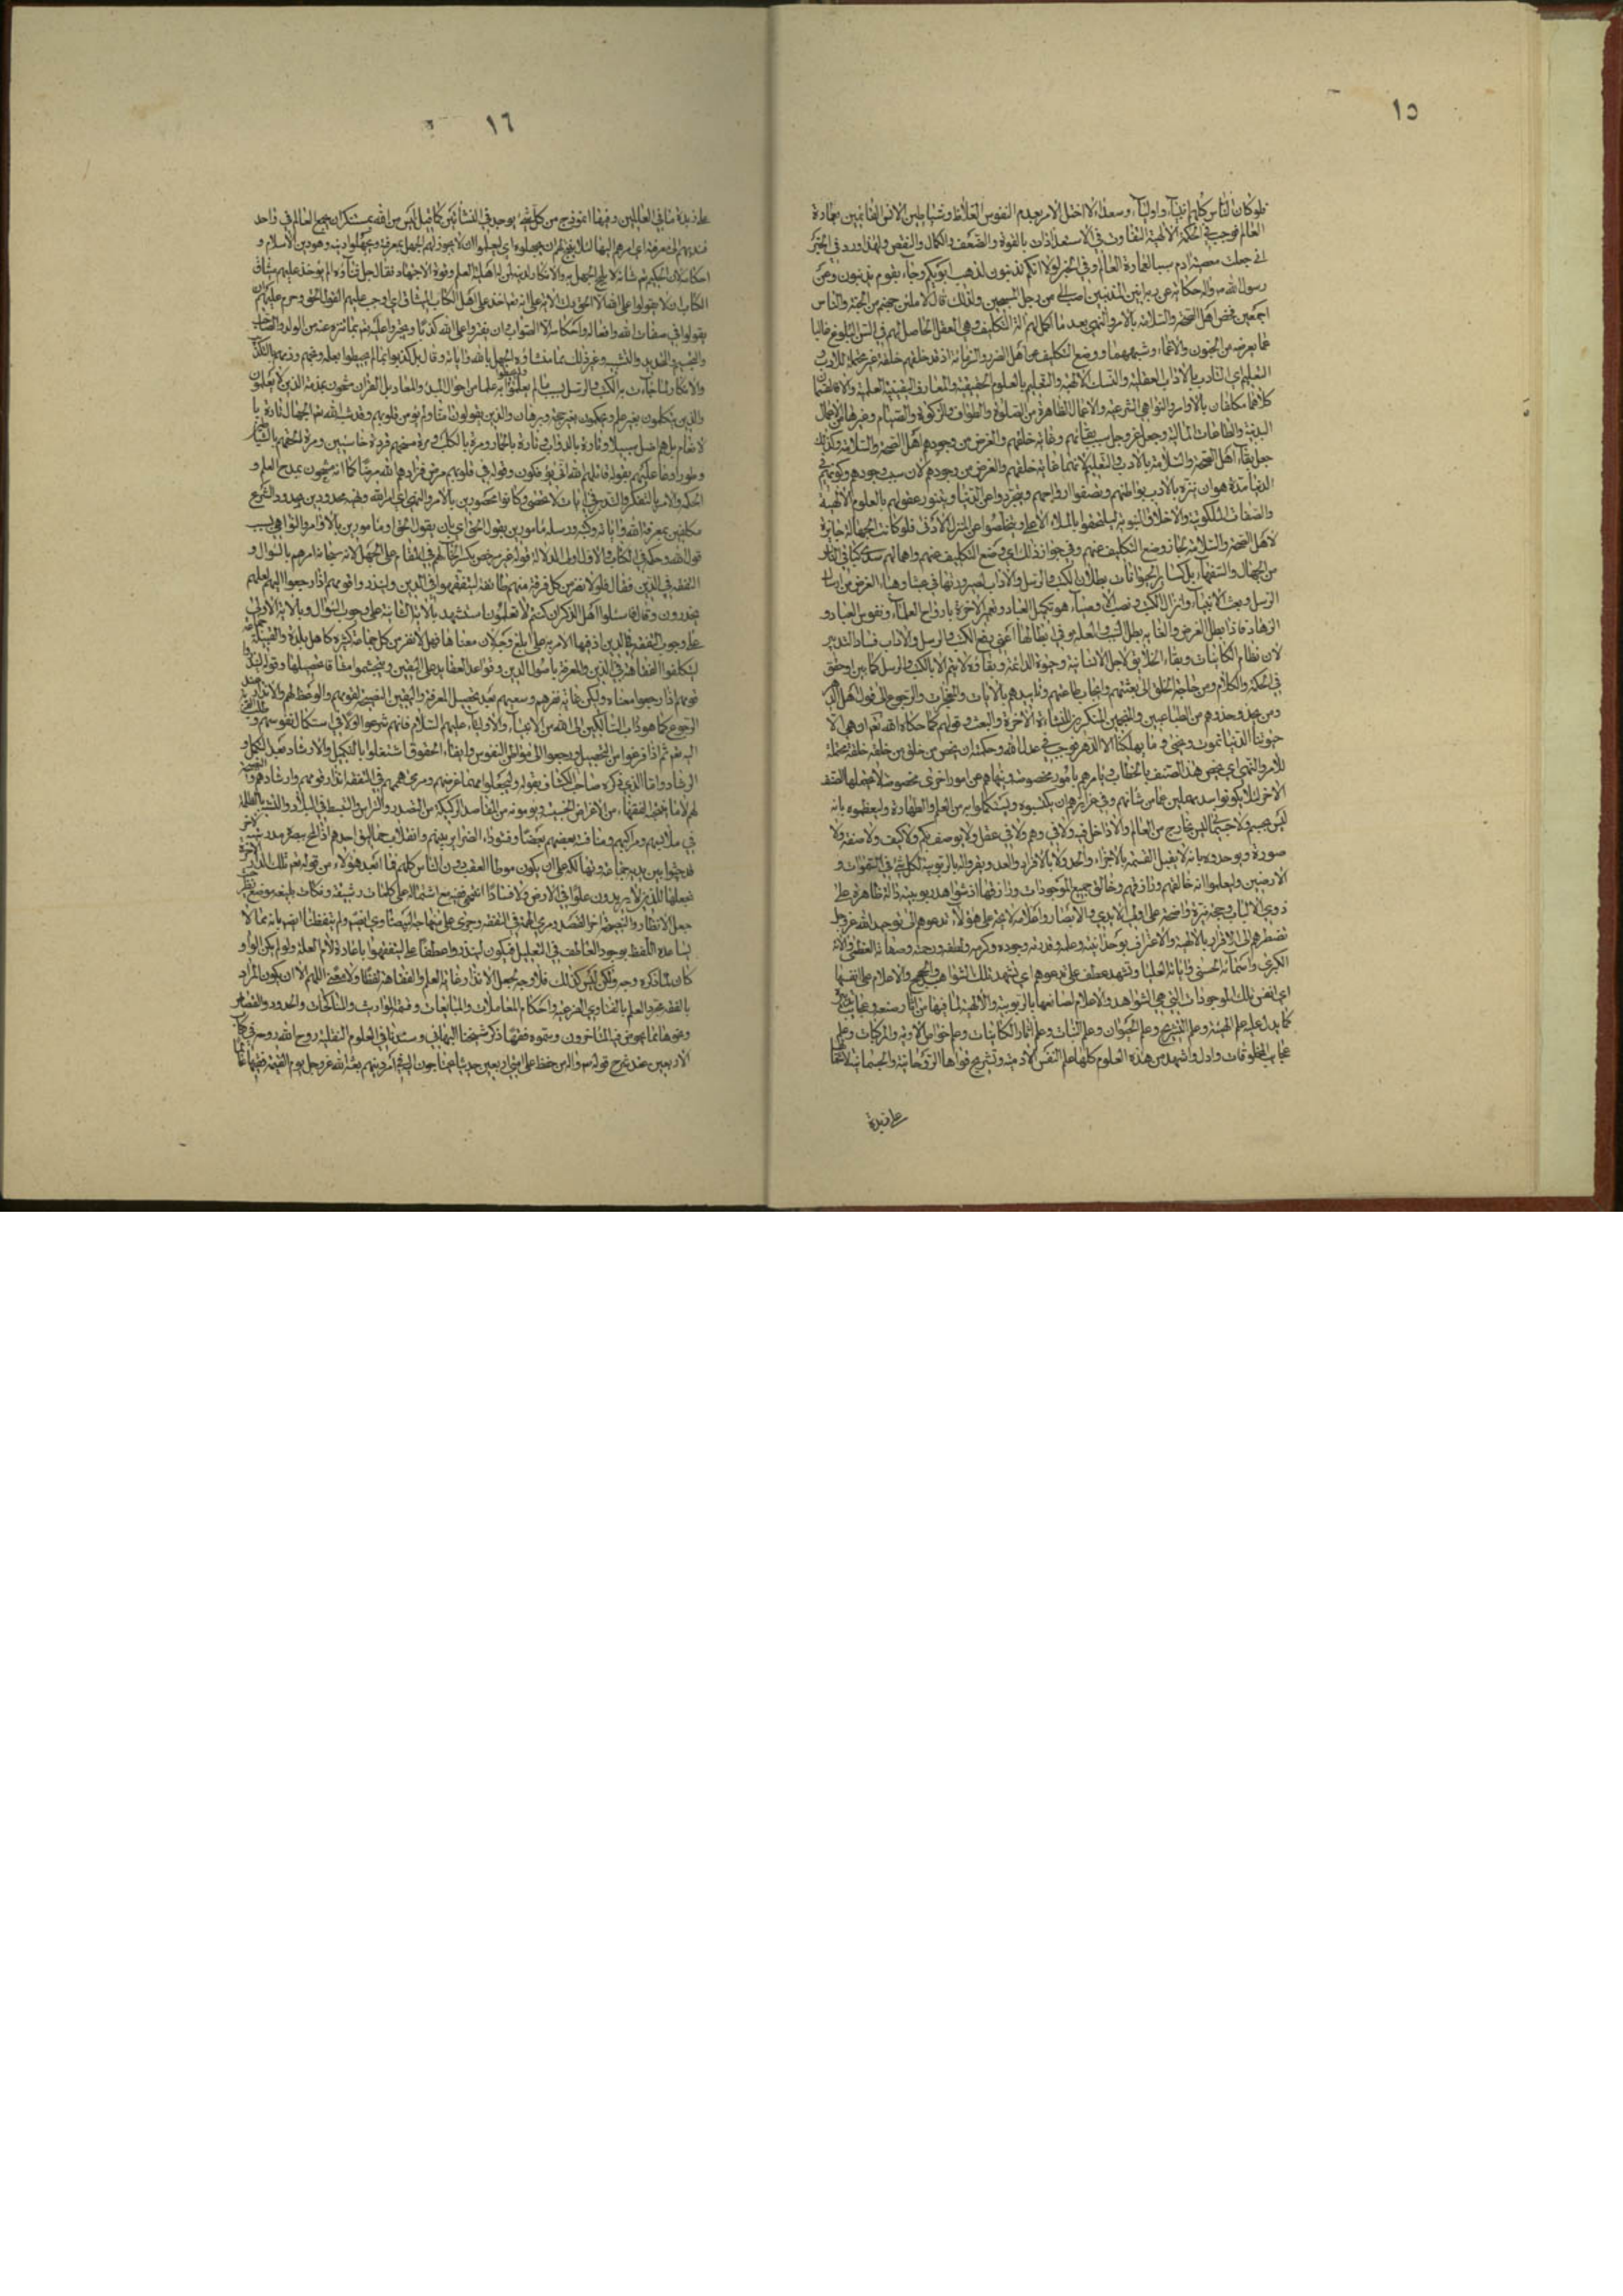 ١٥
فلو كان الناس كلهم انبياء واولياء وسعداء لاختل الامر بعدم النفوس الغلاظ وشياطين الانس القائمين بعمارة
العالم فوجب في الحكمة الالهية التفاوت في الاستعدادات بالقوة والضعف والكمال والنقص ولهذا ورد في الخبر
اني جعلت معصية ادم سببا لعمارة العالم وفي الخبر لولا انكم تذنبون لذهب الله بكم وجاء بقوم يذنبون وعن
رسول الله ص واله حكاية عن ربه انين المذنبين احب الي من زجل المسبحين ولذلك قال لاملئن جهنم من الجنة والناس
اجمعين فخص اهل الصحة والسلامة بالامر والنهي بعد ما اكمل لهم الة التكليف وهي العقل الحاصل لهم في السن البلوغ غالبا
عما يعرضه من الجنون والاغماء وشبههما ووضع التكليف عن اهل الضرر والزمانة اذ قد خلقهم خلقة غير محتملة للادب و
التعليم اي التادب بالاداب العقلية والنسك الالهية والتعليم بالعلوم الحقيقية والمعارف اليقينية العلمية والا فالقسمان
كلاهما مكلفان بالاوامر والنواهي الشرعية والاعمال الظاهرة من الصلوة والطواف والزكوة والصيام وغيرها من الاعمال
البدنية والطاعات المالية وجعل عز وجل سبب بقائهم وغاية خلقهم والغرض من وجودهم اهل الصحة والسلامة وكذلك
جعل بقاء اهل الصحة والسلامة بالادب والتعليم لانهما غاية خلقهم والغرض من وجودهم لان سبب وجودهم وكونهم في
الدنيا مدة هو ان تنزه بالادب بواطنهم وتصفوا ارواحهم ويتجردوا عن الدنيا ويتنور عقولهم بالعلوم الالهية
والصفات الملكوتية والاخلاق النبوية ليلتحقوا بالملاء الاعلى ويتخلصوا عن المنزل الادنى فلو كانت الجهالة جايزة
لاهل الصحة والسلامة لجاز وضع التكليف عنهم وفي جواز ذلك اي وضع التكليف عنهم واهمالهم سدى كباقي الناس
من الجهال والسفهاء بل كساير الحيوانات بطلان الكتب والرسل والاداب لصيرورتها في عبثا وهباء الغرض من ارسال
الرسل وبعث الانبياء وانزال الكتب ونصب الاوصياء هو تكميل العباد وتعمير الاخرة بارواح العلماء ونفوس العباد و
الزهاد فاذا بطل الغرض والغاية بطل السبب والعلة وفي ابطالها اعني رفع الكتب والرسل والاداب فساد التدبير
لان نظام الكاينات وبقاء الخلايق لاجل الانسانية وجوه الداعية وبقاؤه لا يتم الا بالكتب والرسل كما بين وحقق
في الحكمة والكلام ومن حاجة الخلق الى بعثتهم وايجاب طاعتهم وتاييدهم بالايات والمعجزات والرجوع الى قول اهل الدهر
ومن يحذو حذوهم من الطباعيين والمنجمين المنكرين للنشاءة الاخرة والبعث وقولهم كما حكاه الله تعالى وهي الا
حيوتنا الدنيا نموت ونحيى وما يهلكنا الا الدهر فوجب في عدل الله وحكمته ان يخص من خلق من خلقه خلقة محتملة
للامر والنهي اي يخص هذا الصنف بالخطاب ويامرهم بامور مخصوصة وينهاهم عن امور اخرى مخصوصة لا يحتملها الصنف
الاخر لئلا يكونوا سدى مهملين عما من شانهم وفي غرائزهم ان يكتسبوه ويستكملوا به من العلم والطهارة وليعظموه بانه
ليس بجسم ولا جسماني ليس بخارج من العالم ولا داخل فيه ولا في وهم ولا في عقل ولا يوصف بكم ولا كيف ولا صفة ولا
صورة ويوحدوه بانه لا يقبل القسمة بالاجزاء والحد ولا بالافراد والعدد ويقروا له بالربوبية لكل شئ في السموات و
الارضين وليعلموا انه خالقهم ورازقهم وخالق جميع الموجودات ورازقها اذ شواهد ربوبيته دالة ظاهرة على
ذوي الالباب وحججه نيرة واضحة على اولي الايدي والابصار واعلامه لايحة على هؤلاء تدعوهم الى توحيد الله عز وجل
تضطرهم الى الاقرار بالالهية والاعتراف بوحدانيته وعلمه وقدرته وجوده وكرمه ولطفه ورحمته وصفاته العظمى والائه
الكبرى واسمائه الحسنى واياته العليا وتشهد عطف على تدعوهم اي تشهد تلك الشواهد والحجج والاعلام على انفسها
اي انفس تلك الموجودات التي هي الشواهد والاعلام لصانعها بالربوبية والالهية لما فيها من اثار صنعه وعجايب تدبيره
كما يدل عليه علم الهيئة وعلم التشريح وعلم الحيوان وعلم النبات وعلم اثار الكاينات وعلم خواص الادوية والمركبات وعلم
عجايب المخلوقات وادل واشهد من هذه العلوم كلها علم النفس الادمية وتشريح قواها الروحانية والجسمانية لانها
على زبدة
١٦
على زبدة ما في العالمين وفيها انموذج من كل شئ يوجد في النشاتين كما قيل ليس من الله بمستنكر ان يجمع العالم في واحد
فندبهم الى معرفته اي امرهم اليها لئلا يبيح لهم ان يجهلوه اي ليعلموا ان لا يجوز لهم الجهل بمعرفته ويجهلوا دينه وهو دين الاسلام و
احكامه لان الحكيم من شانه لا يبيح الجهل به والانكار لدينه لمن له اهلية العلم وقوة الاجتهاد فقال جل ثناؤه الم يؤخذ عليهم ميثاق
الكتاب ان لا يقولوا على الله الا الحق دلت الاية على انه تعالى اخذ على اهل الكتاب الميثاق اي اوجب عليهم القول الحق وحرم عليهم ان
يقولوا في صفات الله وافعاله واحكامه الا الصواب وان يفتروا على الله كذبا ويخبروا عليه تعالى بما تنزه عنه من الولد والصاحب
والتجسيم والتحديد والتشبيه وغير ذلك مما منشاؤه الجهل بالله واياته وقال بل كذبوا بما لم يحيطوا بعلمه وذمهم بالتكذيب
والانكار لما جاءت به الكتب والرسل بسبب ما لم يعلموا به علما من احوال المبدء والمعاد بل القران مشحون بمذمة الذين لا يعلمون
والذين يتكلمون بغير علم ويحكمون بغير حجة وبرهان والذين يقولون امنا ولم تؤمن قلوبهم وقد شبه الله تعالى الجهال تارة بال
لانعام بل هم اضل سبيلا وتارة بالدواب وتارة بالحمار ومرة بالكلب ومرة مسخهم قردة خاسئين ومرة الحقهم بالشياطين
وطورا دعا عليهم بقوله قاتلهم الله انى يؤفكون وقوله في قلوبهم مرض فزادهم الله مرضا كما انه مشحون بمدح العلم و
الحكمة والامر بالتفكر والتدبر في ايات لا تحصى وكانوا محصورين بالامر والنهي اي امر الله ونهيه محدودين بحدود الشرع
مكلفين بمعرفة الله واياته وكتبه ورسله مامورين بقول الحق اي بان يقول الحق او مامورين بالاوامر والنواهي بسبب
قول الله وحكمه في الكتاب والاول اوفق لدلالة قوله غير مرخص بكسر الخاء لهم في المقام على الجهل لانه سبحانه امرهم بالسؤال و
التفقه في الدين فقال فلولا نفر من كل فرقة منهم طائفة ليتفقهوا في الدين ولينذروا قومهم اذا رجعوا اليهم لعلهم
يحذرون وقال فاسئلوا اهل الذكر ان كنتم لا تعلمون استشهد بالاية الثانية على وجوب السؤال وبالاية الاولى
على وجوب التفقه في الدين اذ فيها الامر به على ابلغ وجه لان معناها فهلا نفر من كل جماعة كثيرة كاهل بلدة والقبيلة جماعة
ليتكلفوا الفقاهة في الدين والمعرفة باصول الدين وقواعد العقايد على اليقين ويتجشموا مشاق تحصيلها وقوله لينذروا
قومهم اذا رجعوا معناه وليكن غاية نفرهم وسعيهم بعد تحصيل المعرفة واليقين التبصير لقومهم والوعظ لهم والانذار عند
الرجوع كما هو داب السالكين الى الله من الانبياء والاولياء عليهم السلام فانهم شرعوا اولا في استكمال نفوسهم و
اليه تعالى ثم اذا فرغوا من التحصيل ورجعوا الى مواطن النفوس وايفاء الحقوق اشتغلوا بالتكميل والارشاد بعد الكمال و
الرشاد واما الذي ذكره صاحب الكشاف بقوله وليجعلوا مطمح غرضهم ومرمى هممهم في التفقه انذار قومهم وارشادهم والنصيحة
لهم لا ما ينتحيه الفقهاء من الاغراض الخسيسة ويؤمونه من المقاصد الركيكة من التصدر والترأس والتبسط في البلاد والتشبه بالظلمة
في ملابسهم ومراكبهم ومنافسة بعضهم بعضا وفشو داء الضراير بينهم وانقلاب حماليق احدهم اذا لمح ببصره مدرسة لاخر
قد جثوا بين يديه جماعة وتهالكه على ان يكون موطأ العقب دون الناس كلهم فما ابعد هؤلاء من قوله تعالى تلك الدار الاخرة
نجعلها للذين لا يريدون علوا في الارض ولا فسادا انتهى فمع اشتماله على كلمات رشيقة ونكات بليغة موضع نظر حيث
جعل الانظار والتبصرة اخر القصد ومرمى الهمة في التفقه وجرى على منهاجه البيضاوي ايضا ولم يتفطنا ايضا بانه مما لا
يساعده اللفظ بوجود العاطف في التعليل فيكون لينذروا عطفا على ليتفقهوا باعادة لام العلة ولو لم يكن الواو
كان لما ذكره وجه ولكن ليس كذلك فلا وجه لجعل الانذار غاية العلم والفقاهة لفظا ولا معنى اللهم الا ان يكون المراد
بالفقه مجرد العلم بالفتاوي الفرعية واحكام المعاملات والمبايعات وقسمة المواريث والمناكحات والحدود والقصاص
ونحوها مما يخوض فيها المتاخرون ويسموه فقها ذكر شيخنا البهائي وسندنا في العلوم النقلية روح الله روحه في كتاب
الاربعين عند شرح قوله ص واله من حفظ على امتي اربعين حديثا مما يحتاجون اليه في امر دينهم بعثه الله عز وجل يوم القيمة فقيها عالما